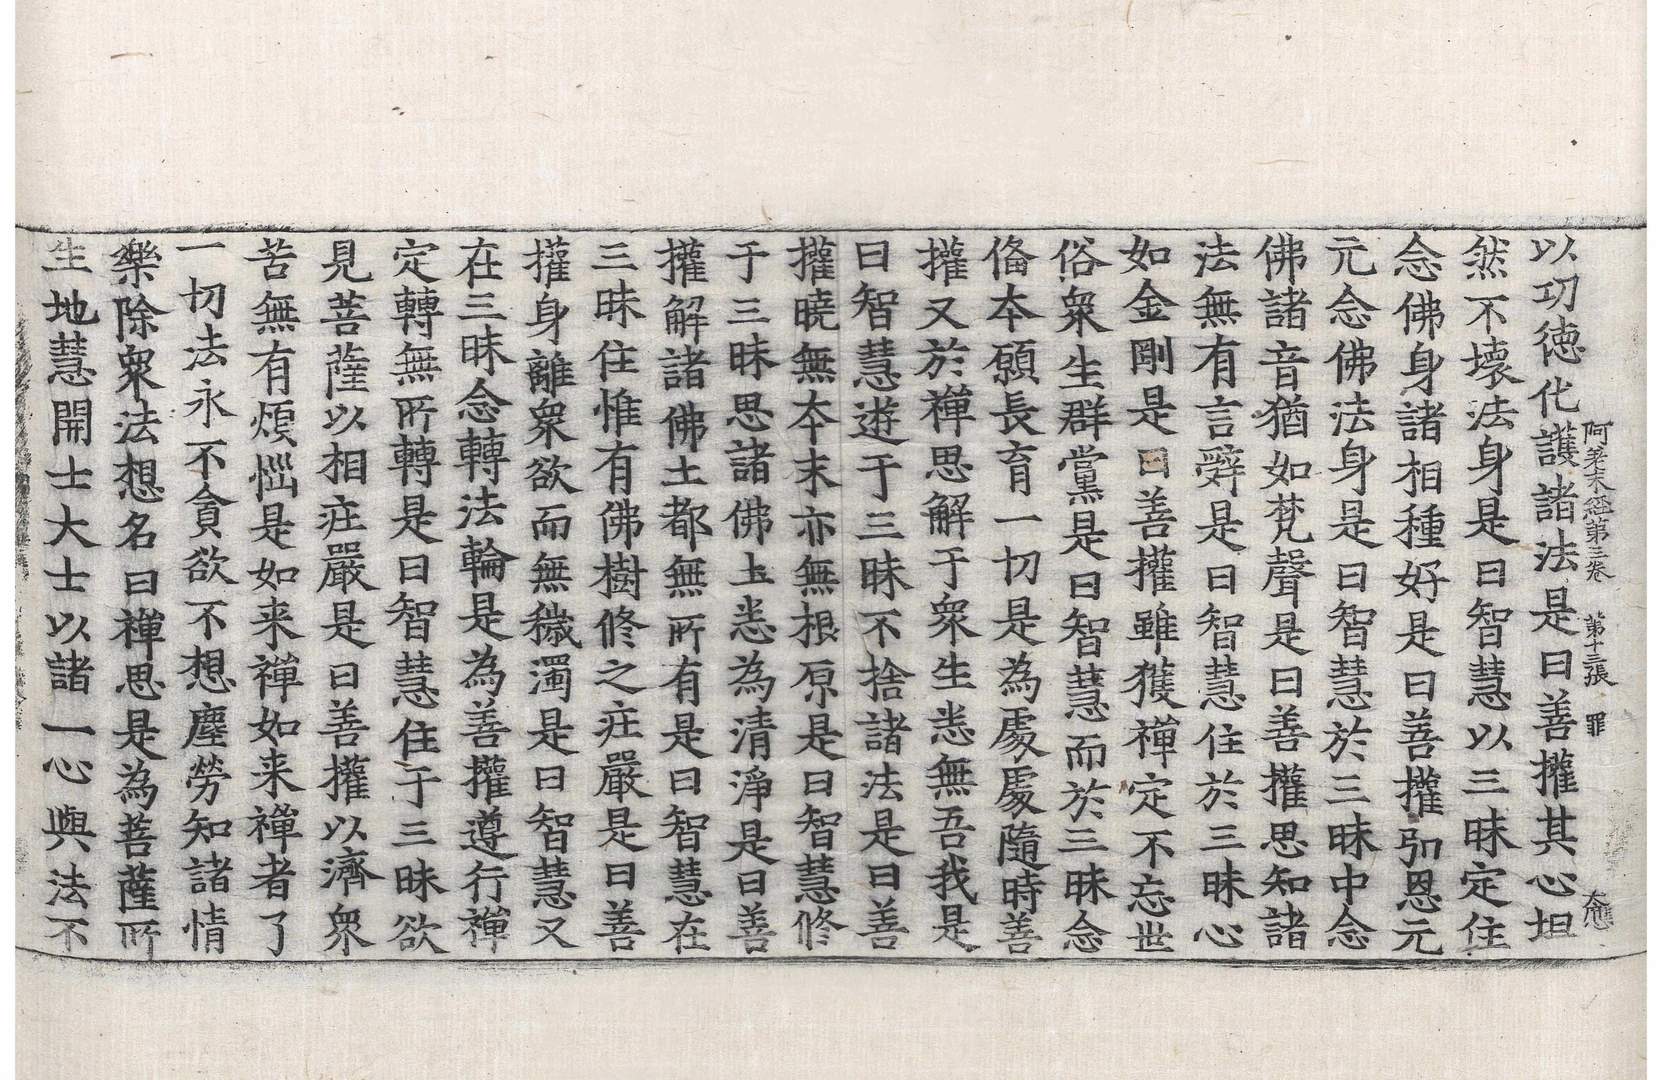 阿差末經第三卷　第十三張　罪　大應
以功德化護諸法是曰善權其心坦
然不壞法身是曰智慧以三昧定住
念佛身諸相種好是曰善權弘恩元
元念佛法身是曰智慧於三昧中念
佛諸音猶如梵聲是曰善權思知諸
法無有言辭是曰智慧住於三昧心
如金剛是曰善權雖獲禪定不忘世
俗衆生群黨是曰智慧而於三昧念
俻本願長育一切是為處處隨時善
權又於禪思解于衆生悉無吾我是
曰智慧遊于三昧不捨諸法是曰善
權曉無本末亦無根原是曰智慧修
于三昧思諸佛土悉為清淨是曰善
權解諸佛土都無所有是曰智慧在
三昧住惟有佛樹修之莊嚴是曰善
權身離衆欲而無穢濁是曰智慧又
在三昧念轉法輪是為善權遵行禪
定轉無所轉是曰智慧住于三昧欲
見菩薩以相莊嚴是曰善權以濟衆
苦無有煩惱是如来禪如来禪者了
一切法永不貪欲不想塵勞知諸情
樂除衆法想名曰禪思是為菩薩所
生地慧開士大士以諸一心與法不